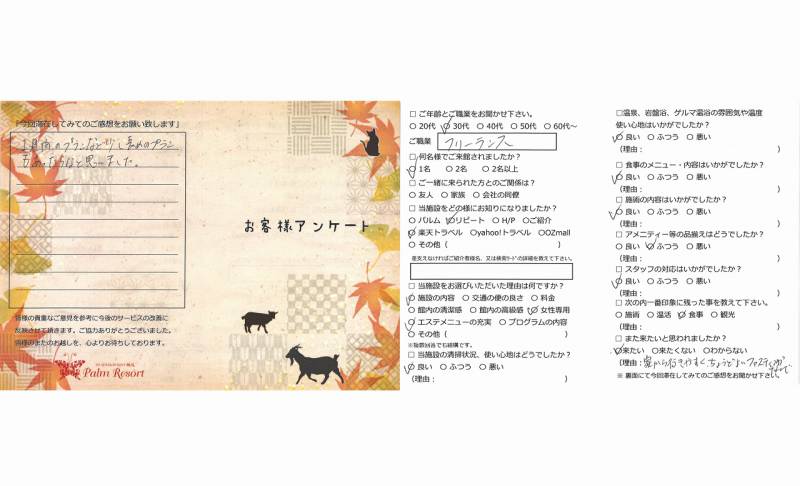 「今回滞在してみてのご感想をお願い致します」
1月向のプランなど少し長めのプラン
もあったらなと思いました。
皆様の貴重なご意見を参考に今後のサービスの改善に
反映させて頂きます。ご協力ありがとうございました。
皆様のまたのお越しを、心よりお待ちしております。
Palm Resort
お客様アンケート
□ ご年齢とご職業をお聞かせ下さい。
○ 20代 ○ 30代 ○ 40代 ○ 50代 ○ 60代～
ご職業 フリーランス
□ 何名様でご来館されましたか？
○ 1名 ○ 2名 ○ 2名以上
□ ご一緒に来られた方とのご関係は？
○ 友人 ○ 家族 ○ 会社の同僚
□ 当施設をどの様にお知りになりましたか？
○ パルム ○ リピート ○ H/P ○ご紹介
○ 楽天トラベル ○yahoo!トラベル ○OZmall
○ その他 ( )
差支えなければご紹介者様名、又は検索ﾜｰﾄﾞの詳細を教えて下さい。
□ 当施設をお選びいただいた理由は何ですか？
○ 施設の内容 ○ 交通の便の良さ ○ 料金
○ 館内の清潔感 ○ 館内の高級感 ○ 女性専用
○ エステメニューの充実 ○ プログラムの内容
○ その他 ( )
※複数回答でも結構です。
□ 当施設の清掃状況、使い心地はどうでしたか？
○ 良い ○ ふつう ○ 悪い
(理由： )
□温泉、岩盤浴、ゲルマ温浴の雰囲気や温度
使い心地はいかがでしたか？
○ 良い ○ ふつう ○ 悪い
(理由： )
□ 食事のメニュー・内容はいかがでしたか？
○ 良い ○ ふつう ○ 悪い
(理由： )
□ 施術の内容はいかがでしたか？
○ 良い ○ ふつう ○ 悪い
(理由： )
□ アメニティー等の品揃えはどうでしたか？
○ 良い ○ ふつう ○ 悪い
(理由： )
□ スタッフの対応はいかがでしたか？
○ 良い ○ ふつう ○ 悪い
(理由： )
□ 次の内一番印象に残った事を教えて下さい。
○ 施術 ○ 温活 ○ 食事 ○ 観光
□ また来たいと思われましたか？
○来たい ○来たくない ○わからない
(理由：家から行きやすく、ちょうどよい
※ 裏面にて今回滞在してみてのご感想をお聞かせ下さい。